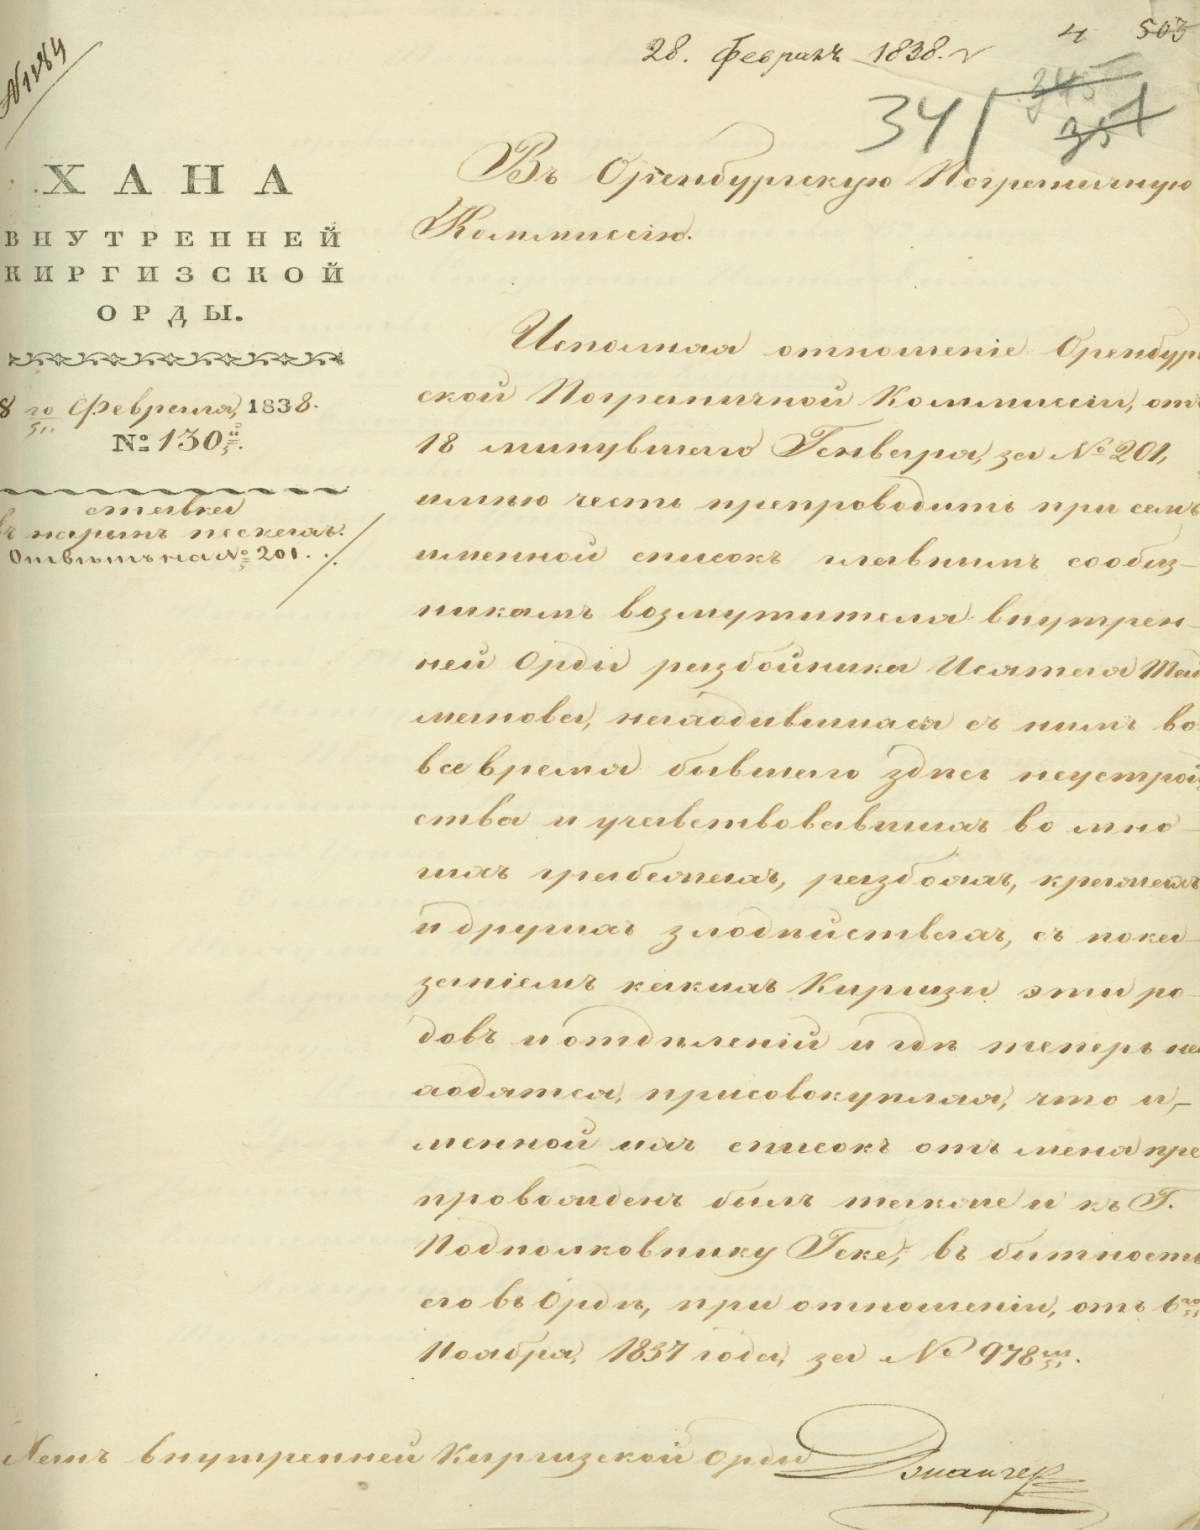 № 1184
28. Февраля 1838. г
4 503
341
345
351
ХАНА
ВНУТРЕННЕЙ
КИРГИЗСКОЙ
ОРДЫ.
8 го Февраля, 1838.
№ 130й.
ставка
въ нарынъ пескахъ.
Отвѣтъ на № 201.
Въ Оренбургскую Пограничную
Коммиссію.
Исполняя отношеніе Оренбург
ской Пограничной Коммиссіи, отъ
18 минувшаго Генваря, за № 201,
имѣю честь препроводить при семъ
именной списокъ главнымъ сообщ-
никамъ возмутителя внутрен-
ней Орды разбойника Исятая Тай
манова, находившихся съ нимъ во
все время бывшаго здѣсь неустрой
ства и участвовавшихъ во мно-
гихъ грабежахъ, разбояхъ, кражахъ
и другихъ злодѣйствахъ, съ пока-
заніемъ какихъ Киргизы эти ро-
довъ и отдѣленій и гдѣ теперь на
ходятся, присовокупляя, что и-
менной ихъ списокъ отъ меня пре
провожденъ былъ также и къ Г.
Подполковнику Геке, въ бытность
его въ Ордѣ, при отношеніи, отъ 6го
Ноября, 1837 года, за № 978м.
Ханъ внутренней Киргизской Орды Джангер